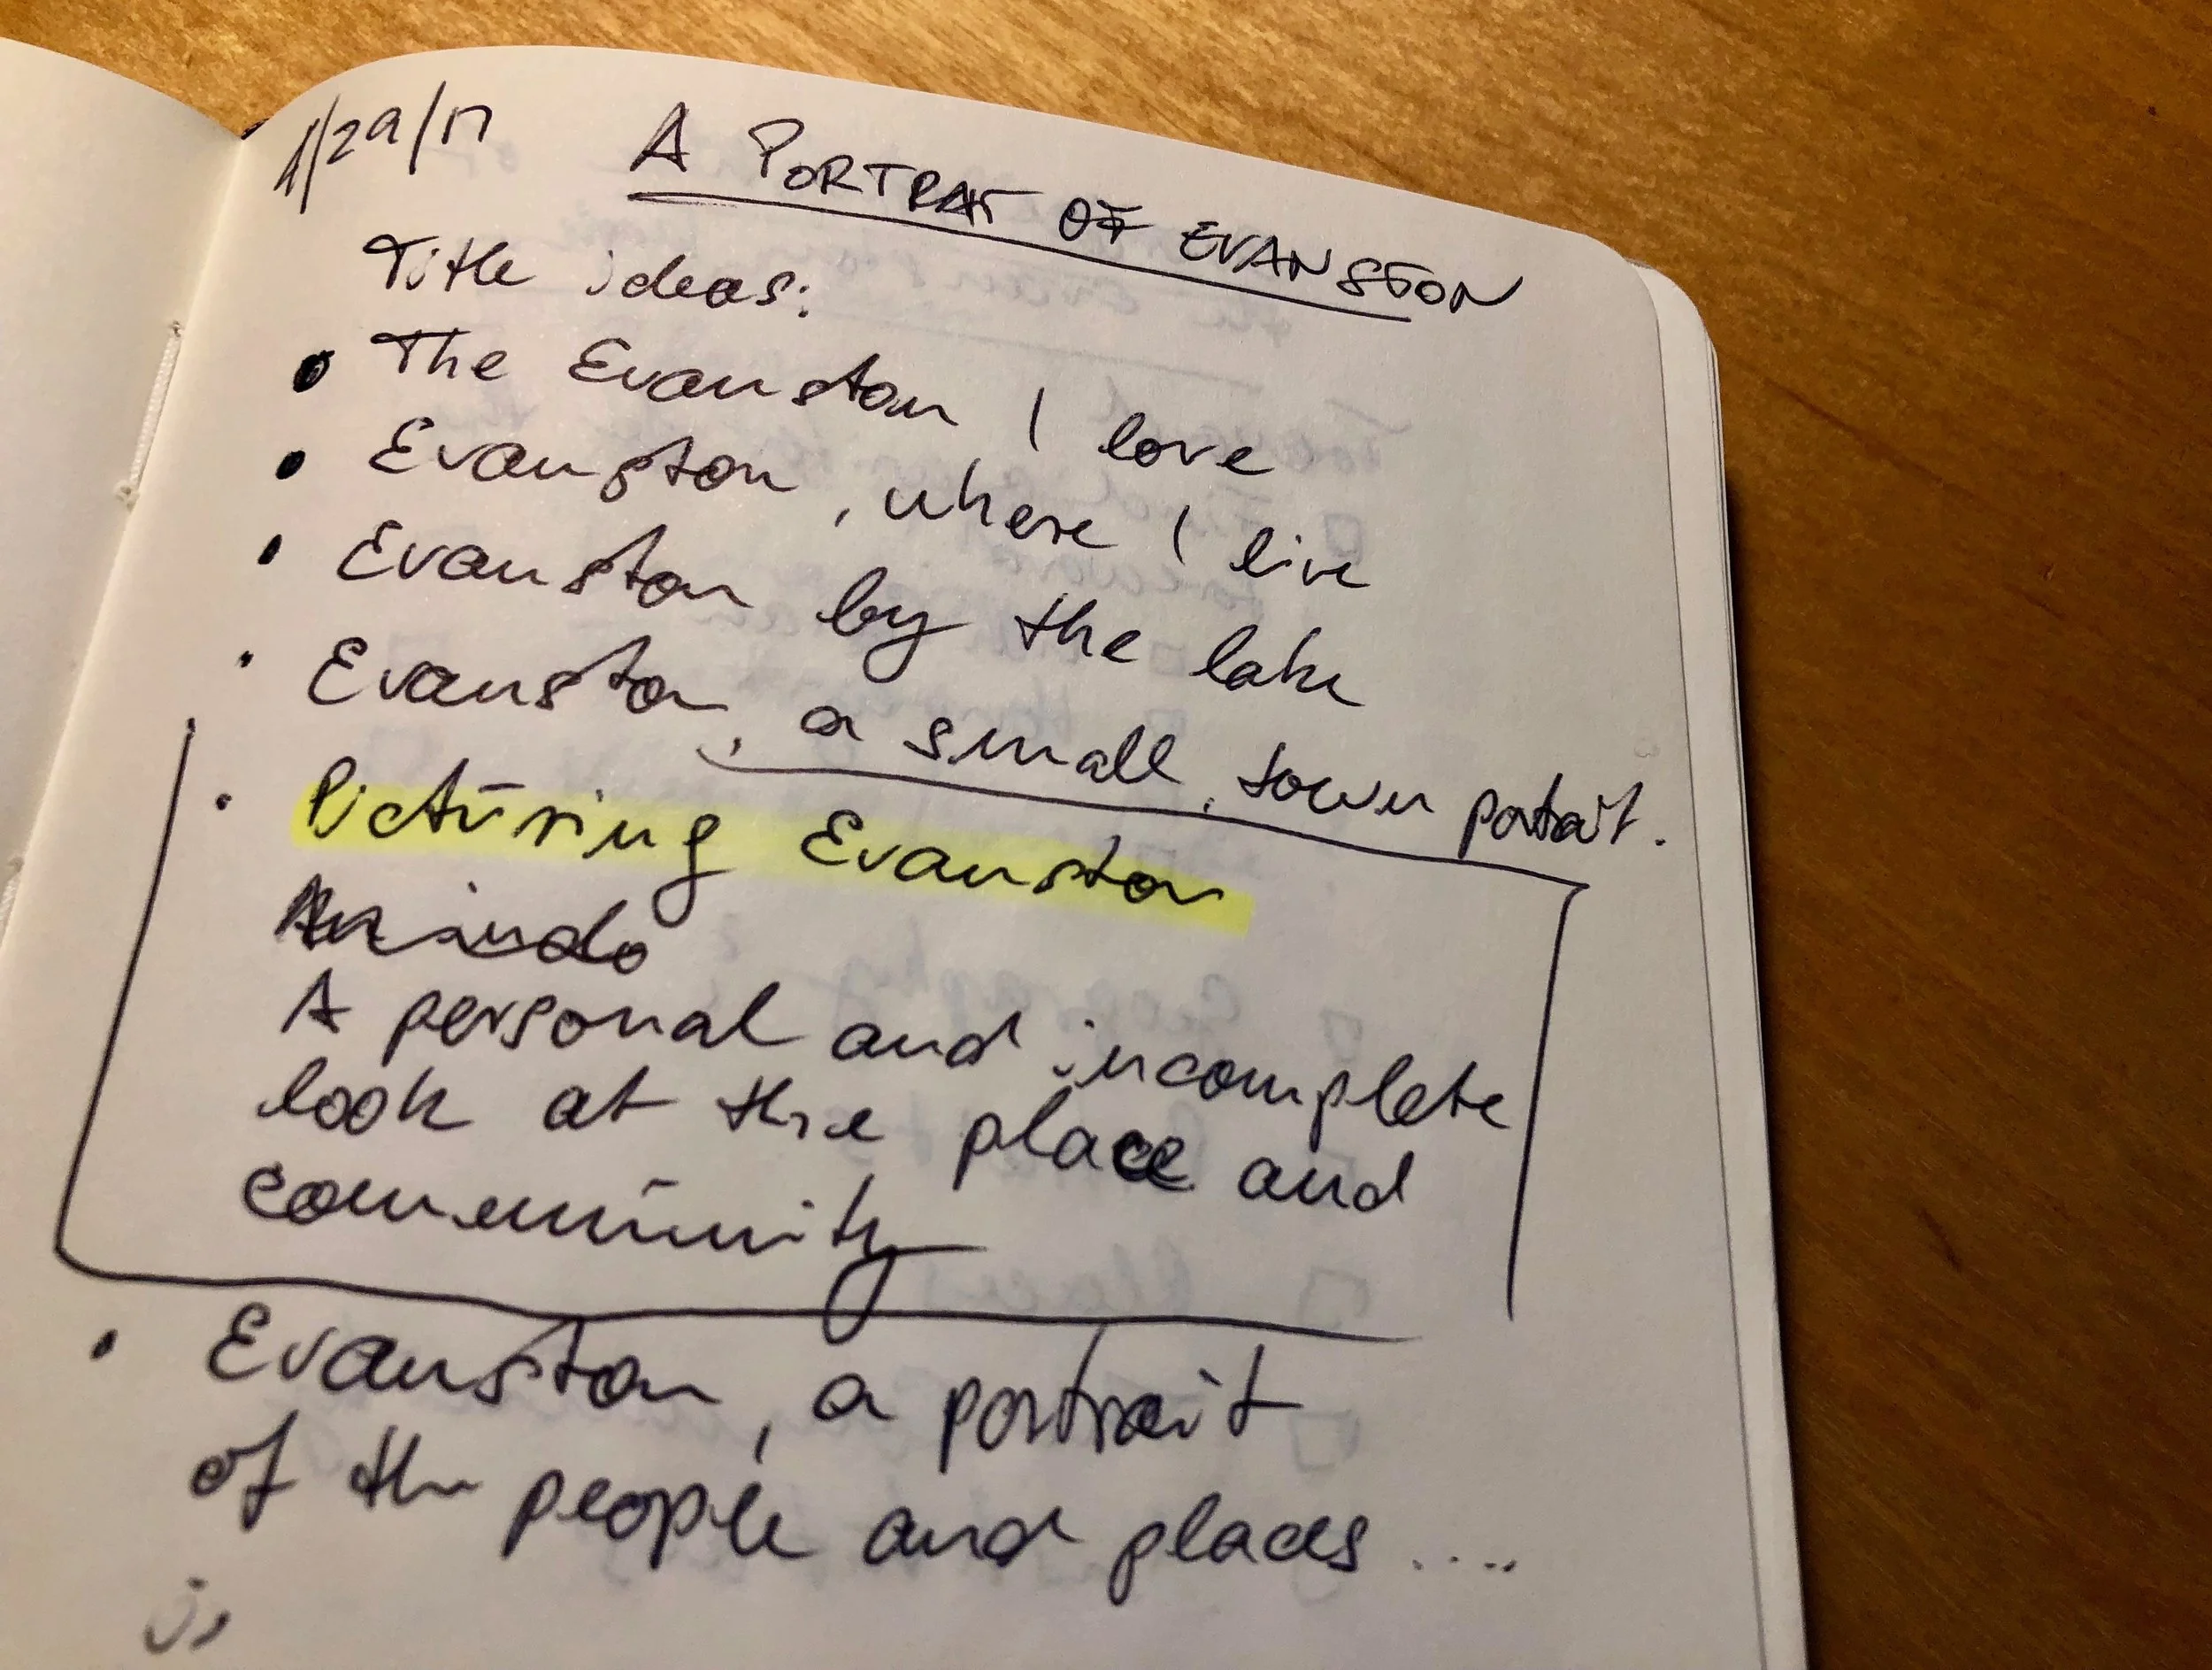 1/29/17 A PORTRAIT OF EVANSTON
Title ideas:
• The Evanston I love
• Evanston, where I live
• Evanston by the lake
• Evanston, a small, town portrait.
• Picturing Evanston
A personal and incomplete
look at the place and
community
• Evanston, a portrait
of the people and places ....